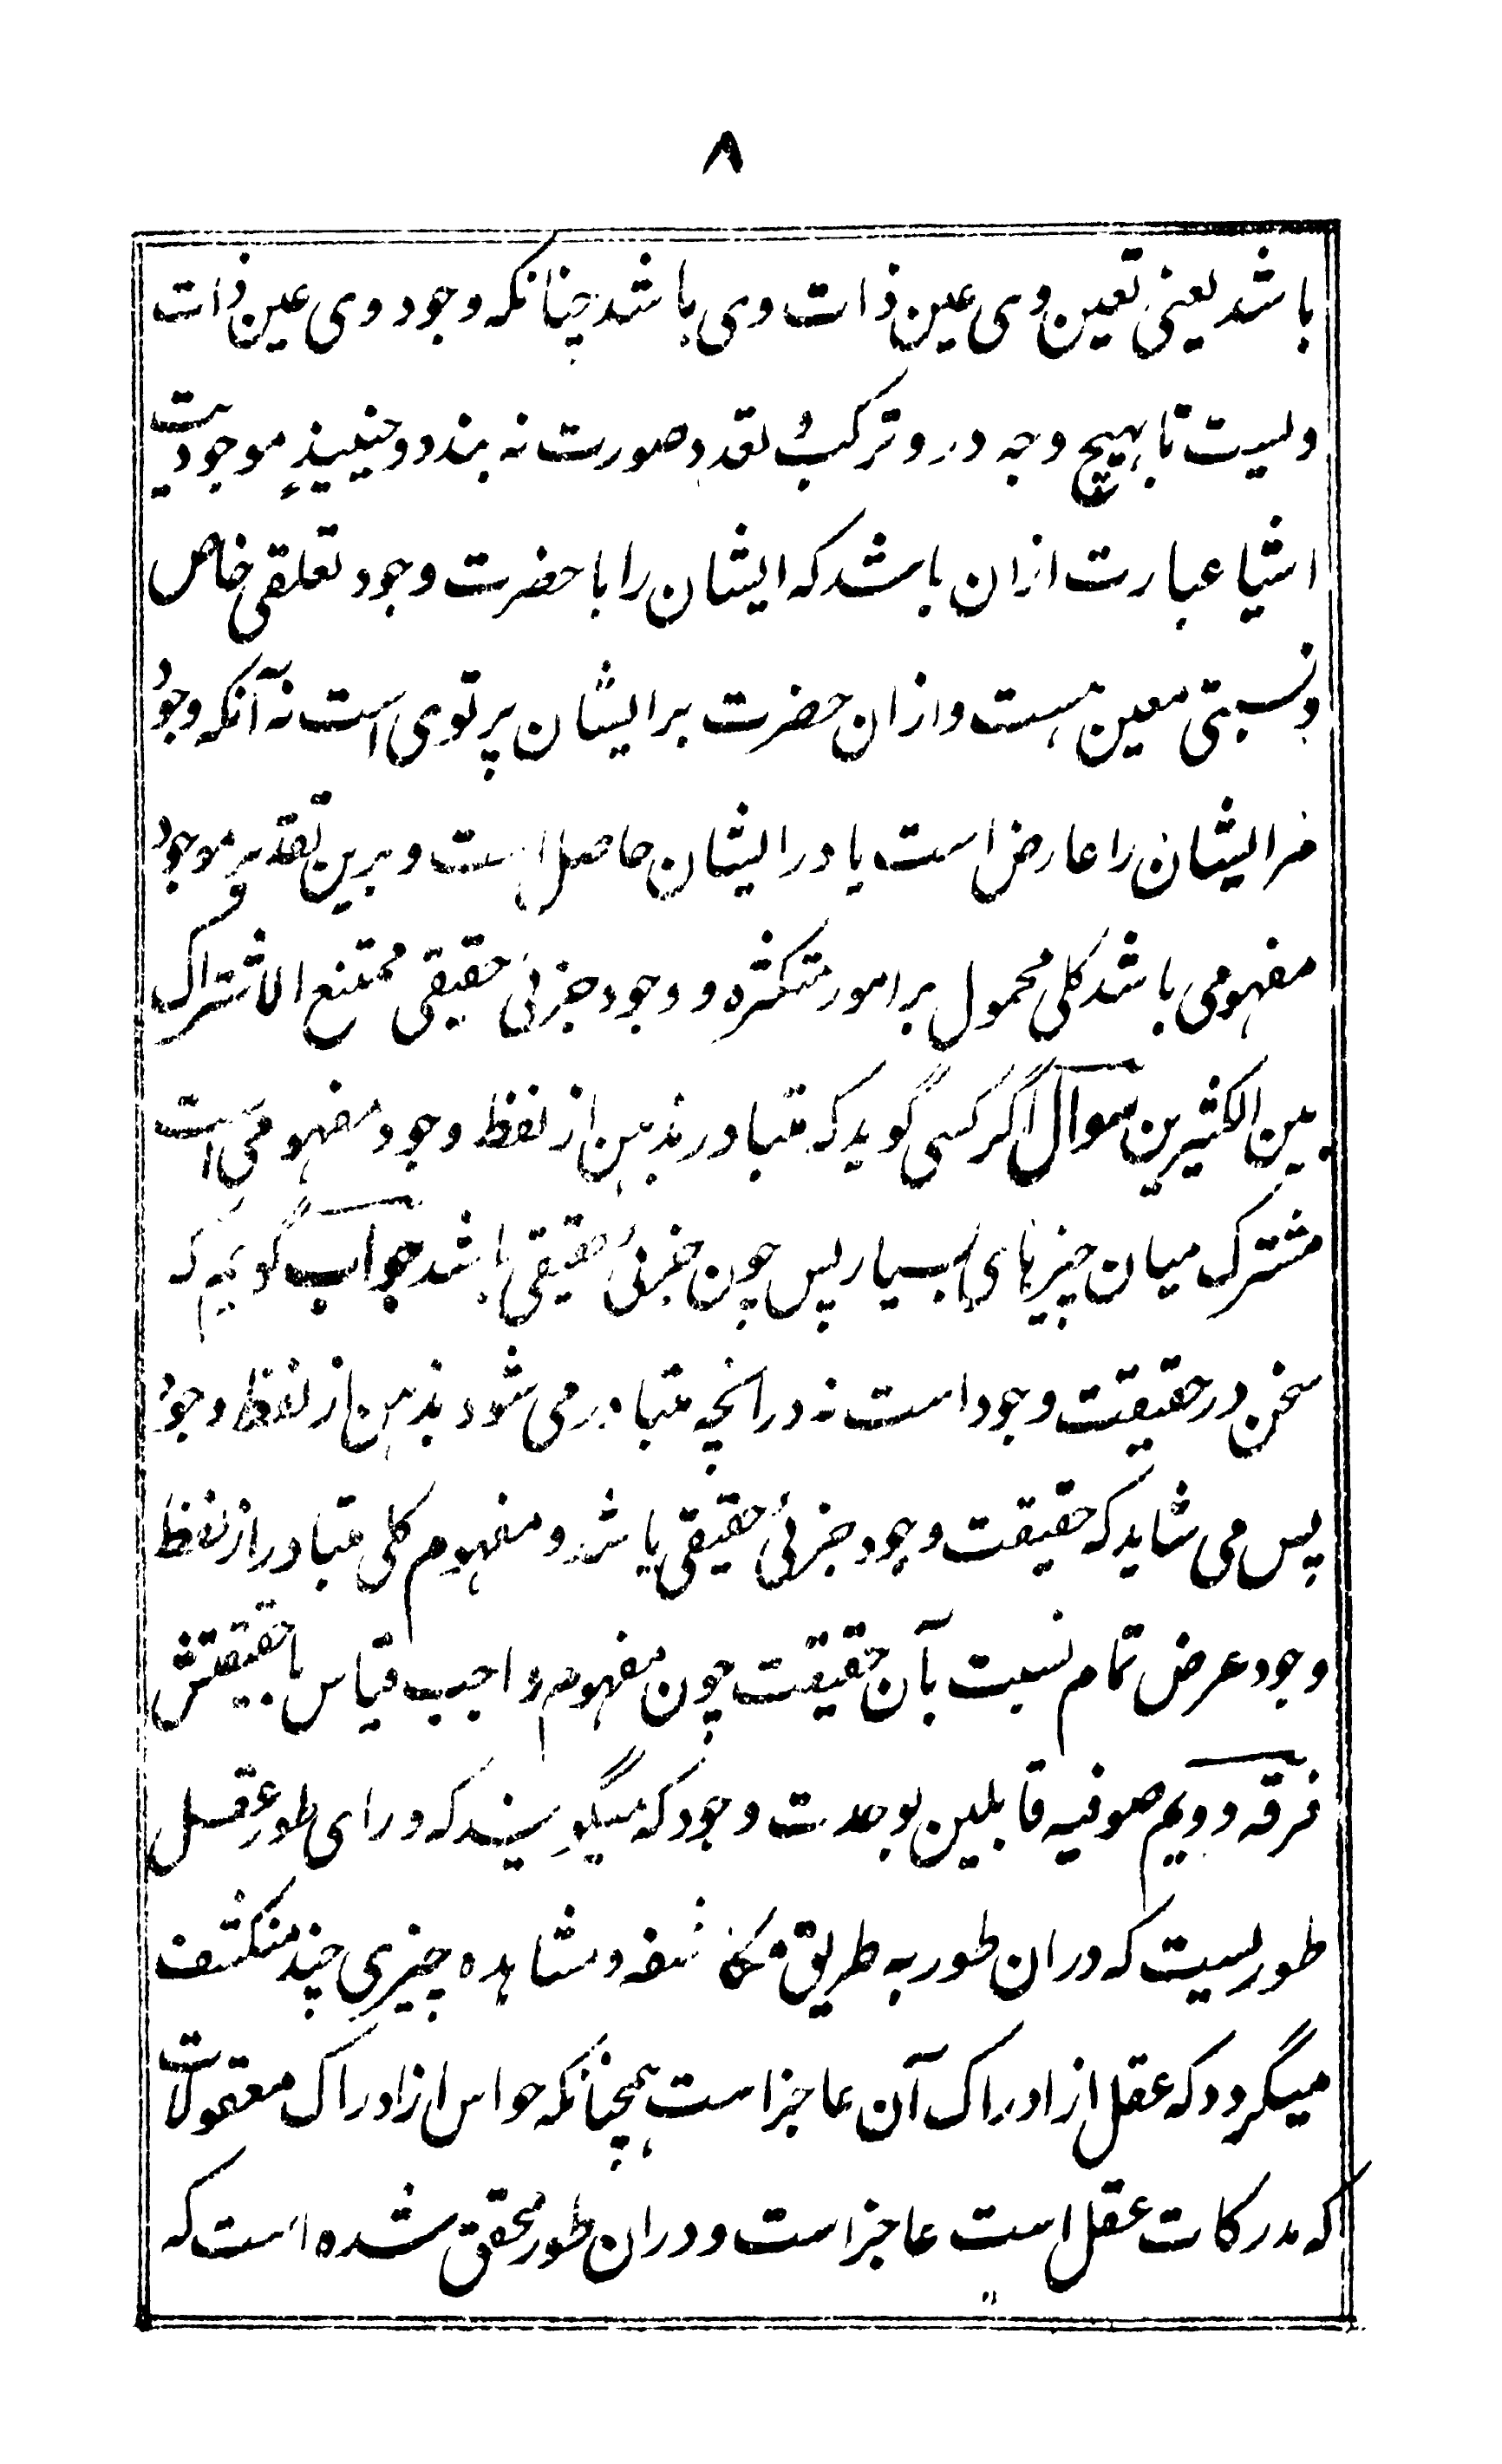 ۸
باشد یعنی تعین وی عین ذات وی باشد چنانکه وجود وی عین ذات
ویست تا بهیچ وجه درو ترکب و تعدد صورت نه بندد و حینئیذٍ موجودیت
اشیا عبارت ازان باشد که ایشان را با حضرت وجود تعلقی خاص
و نسبتی معین هست و ازان حضرت بر ایشان پرتوی است نه آنکه وجود
مر ایشان را عارض است یا در ایشان حاصل است و برین تقدیر موجود
مفهومی باشد کلی محمول بر امور متکثره و وجود جزئی حقیقی ممتنع الاشتراک
بین الکثیرین سوال اگر کسی گوید که متبادر بذهن از لفظ وجود مفهومی است
مشترک میان چیزهای بسیار پس چون جزئی حقیقی باشد جواب گویم که
سخن در حقیقت وجود است نه در انچه متبادر می شود بذهن از لفظ وجود
پس می شاید که حقیقت وجود جزئی حقیقی باشد و مفهوم کلی متبادر از لفظ
وجود عرض تمام نسبت بآن حقیقت چون مفهوم واجب قیاس باحقیقتش
فرقه دویم صوفیه قایلین بوحدت وجود که میگویند که ورای طور عقل
طوریست که دران طور به طریق مکاشفه و مشاهده چیزی چند منکشف
میگردد که عقل از ادراک آن عاجز است همچنانکه حواس از ادراک معقولات
که مدرکات عقل است عاجز است و دران طور محقق شده است که